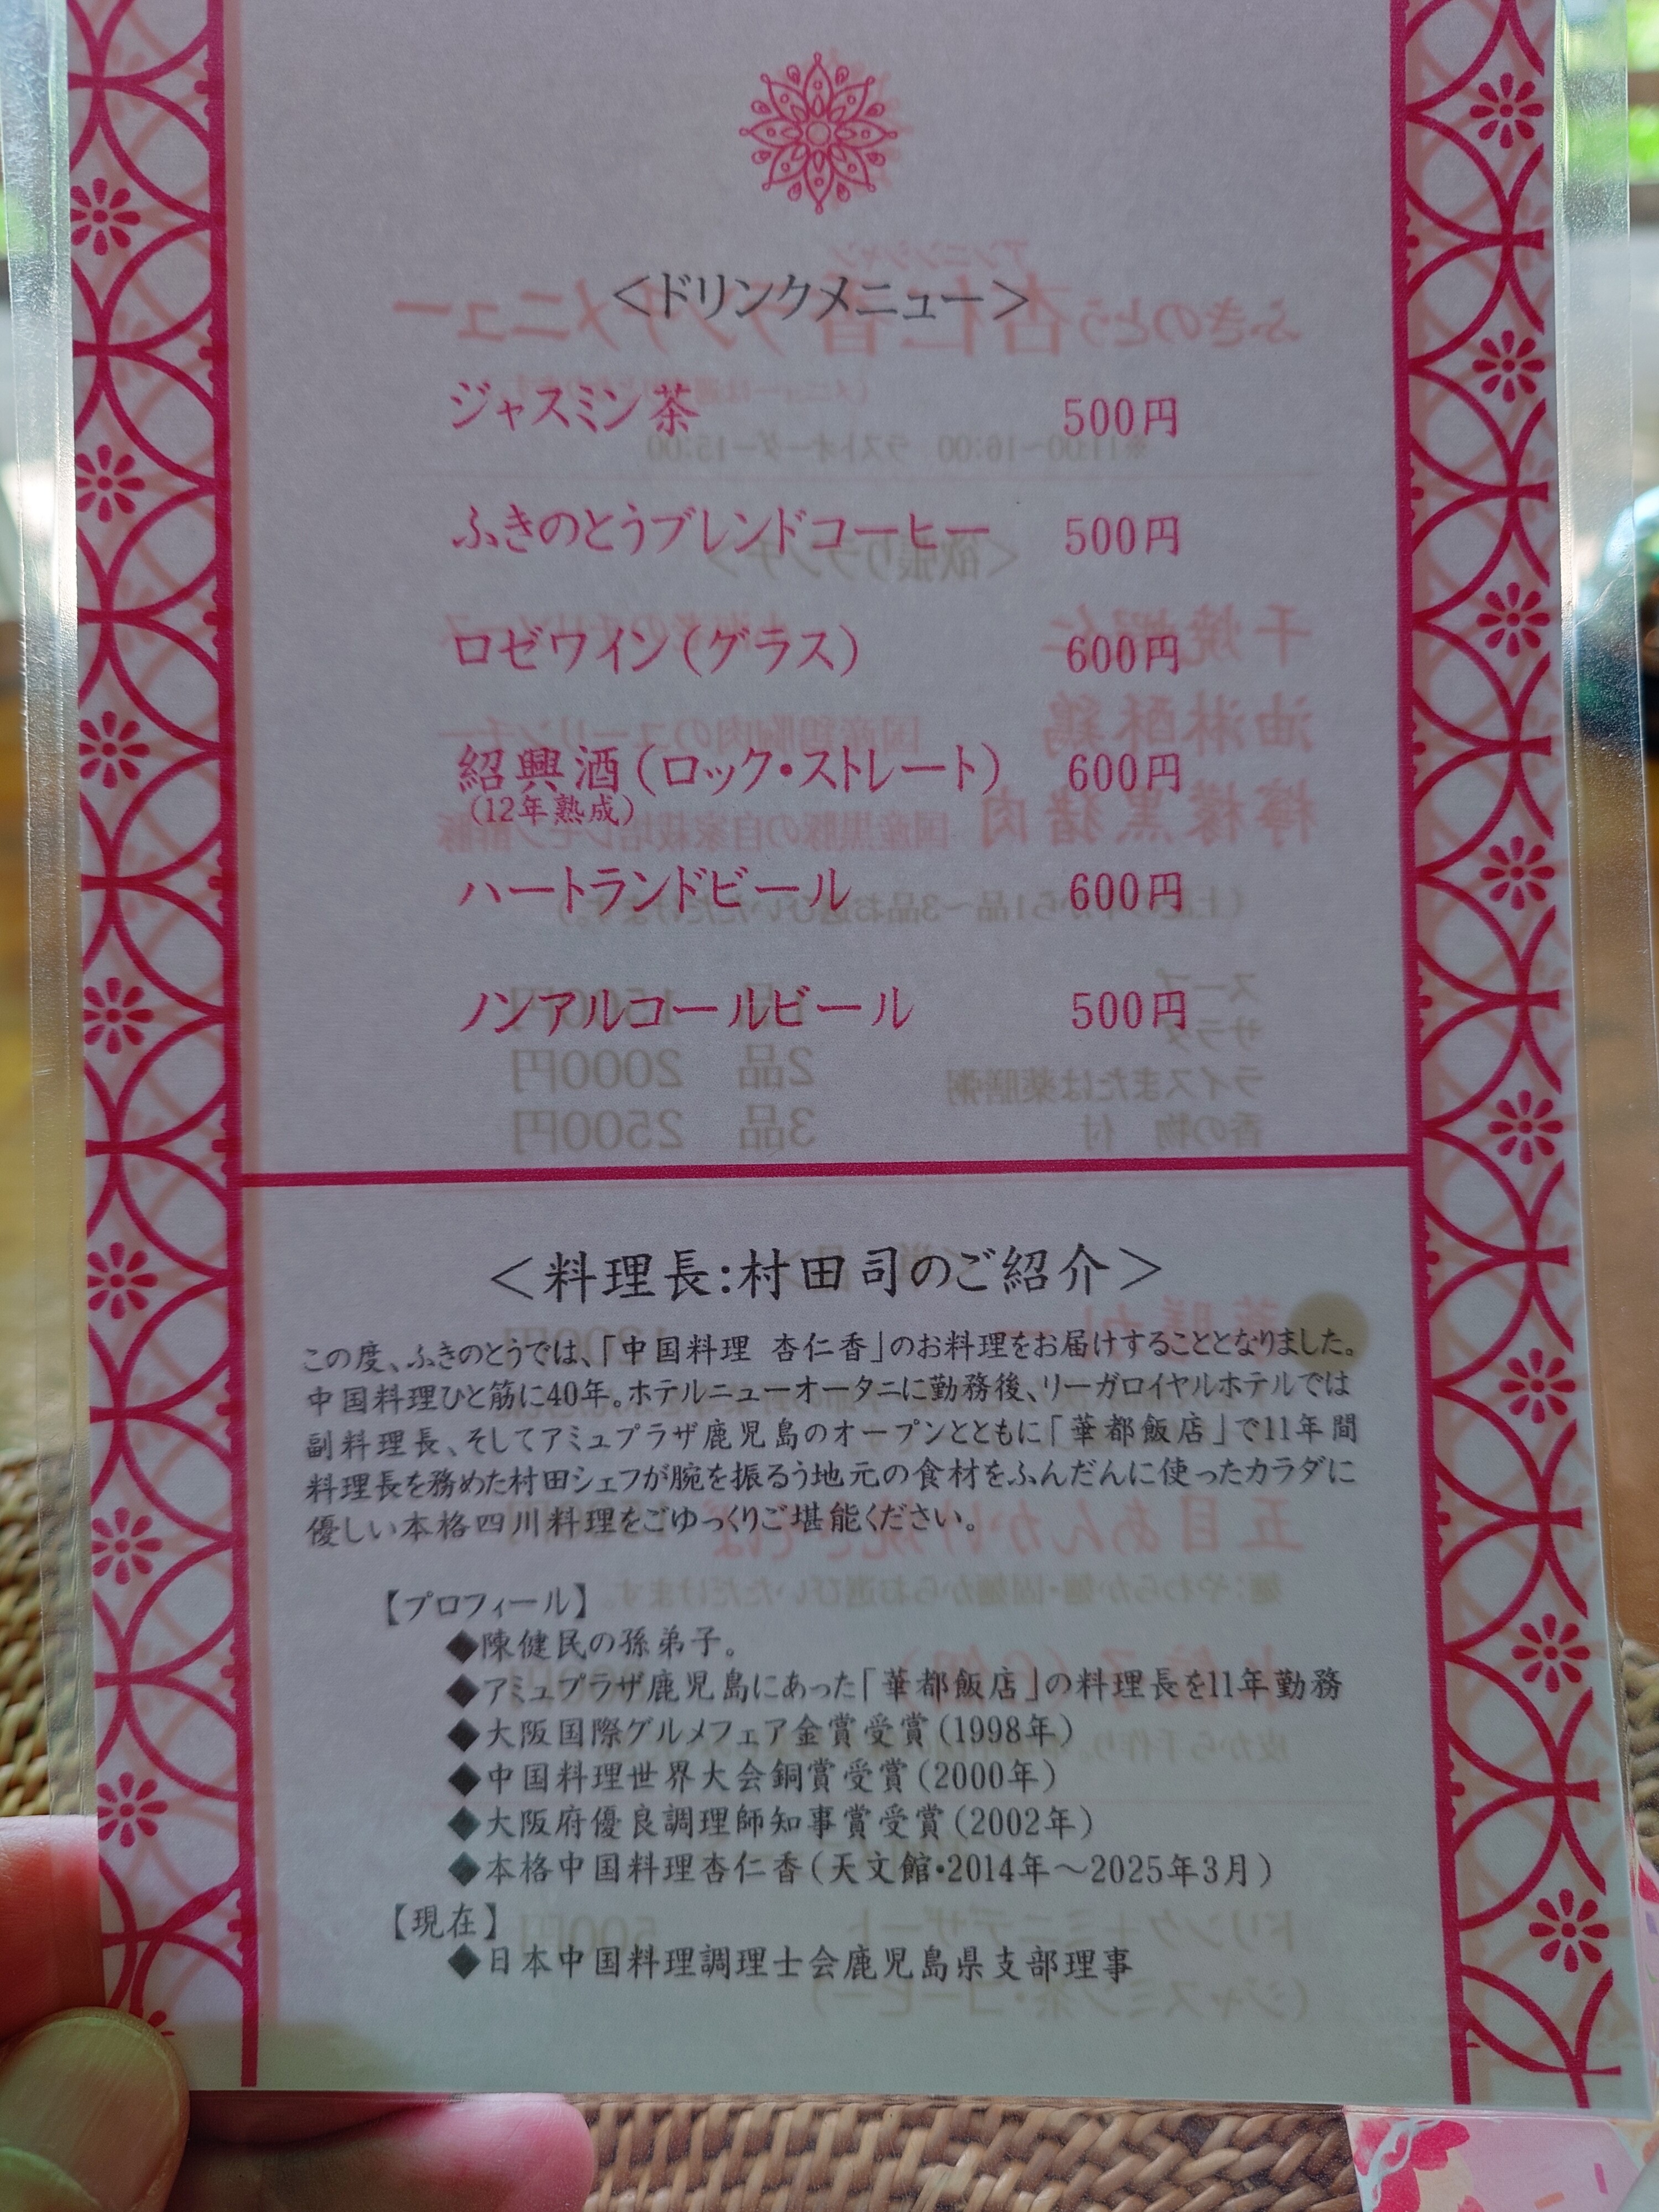 ＜ドリンクメニュー＞
ジャスミン茶 500円
ふきのとうブレンドコーヒー 500円
ロゼワイン（グラス） 600円
紹興酒（ロック・ストレート） 600円
（12年熟成）
ハートランドビール 600円
ノンアルコールビール 500円
＜料理長：村田司のご紹介＞
この度、ふきのとうでは、「中国料理 杏仁香」のお料理をお届けすることとなりました。
中国料理ひと筋に40年。ホテルニューオータニに勤務後、リーガロイヤルホテルでは
副料理長、そしてアミュプラザ鹿児島のオープンとともに「華都飯店」で11年間
料理長を務めた村田シェフが腕を振るう地元の食材をふんだんに使ったカラダに
優しい本格四川料理をごゆっくりご堪能ください。
【プロフィール】
◆陳健民の孫弟子。
◆アミュプラザ鹿児島にあった「華都飯店」の料理長を11年勤務
◆大阪国際グルメフェア金賞受賞（1998年）
◆中国料理世界大会銅賞受賞（2000年）
◆大阪府優良調理師知事賞受賞（2002年）
◆本格中国料理杏仁香（天文館・2014年～2025年3月）
【現在】
◆日本中国料理調理士会鹿児島県支部理事